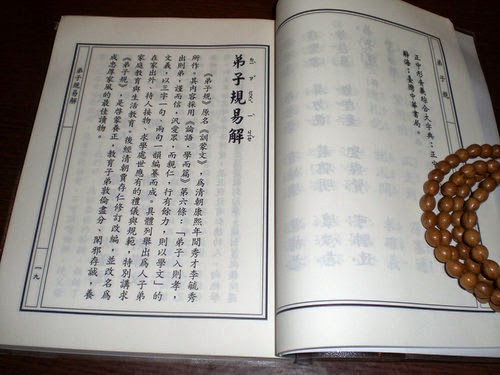 弟子規
正中形音義綜合大字典：正中
辭海：臺灣中華書局。
弟子規易解
《弟子規》原名《訓蒙文》，爲清朝康熙年間秀才李毓秀
所作。其內容採用《論語‧學而篇》第六條：「弟子入則孝，
出則弟，謹而信，汎愛眾，而親仁，行有餘力，則以學文」的
文義，以三字一句、兩句一韻編纂而成。具體列舉出爲人子弟
在家出外、待人接物、求學處世應有的禮儀與規範，特別講求
家庭教育與生活教育。後經清朝賈存仁修訂改編，並改名爲
《弟子規》，是啟蒙養正，教育子弟敦倫盡分、閑邪存誠，養
成忠厚家風的最佳讀物。
弟子規易解
一九